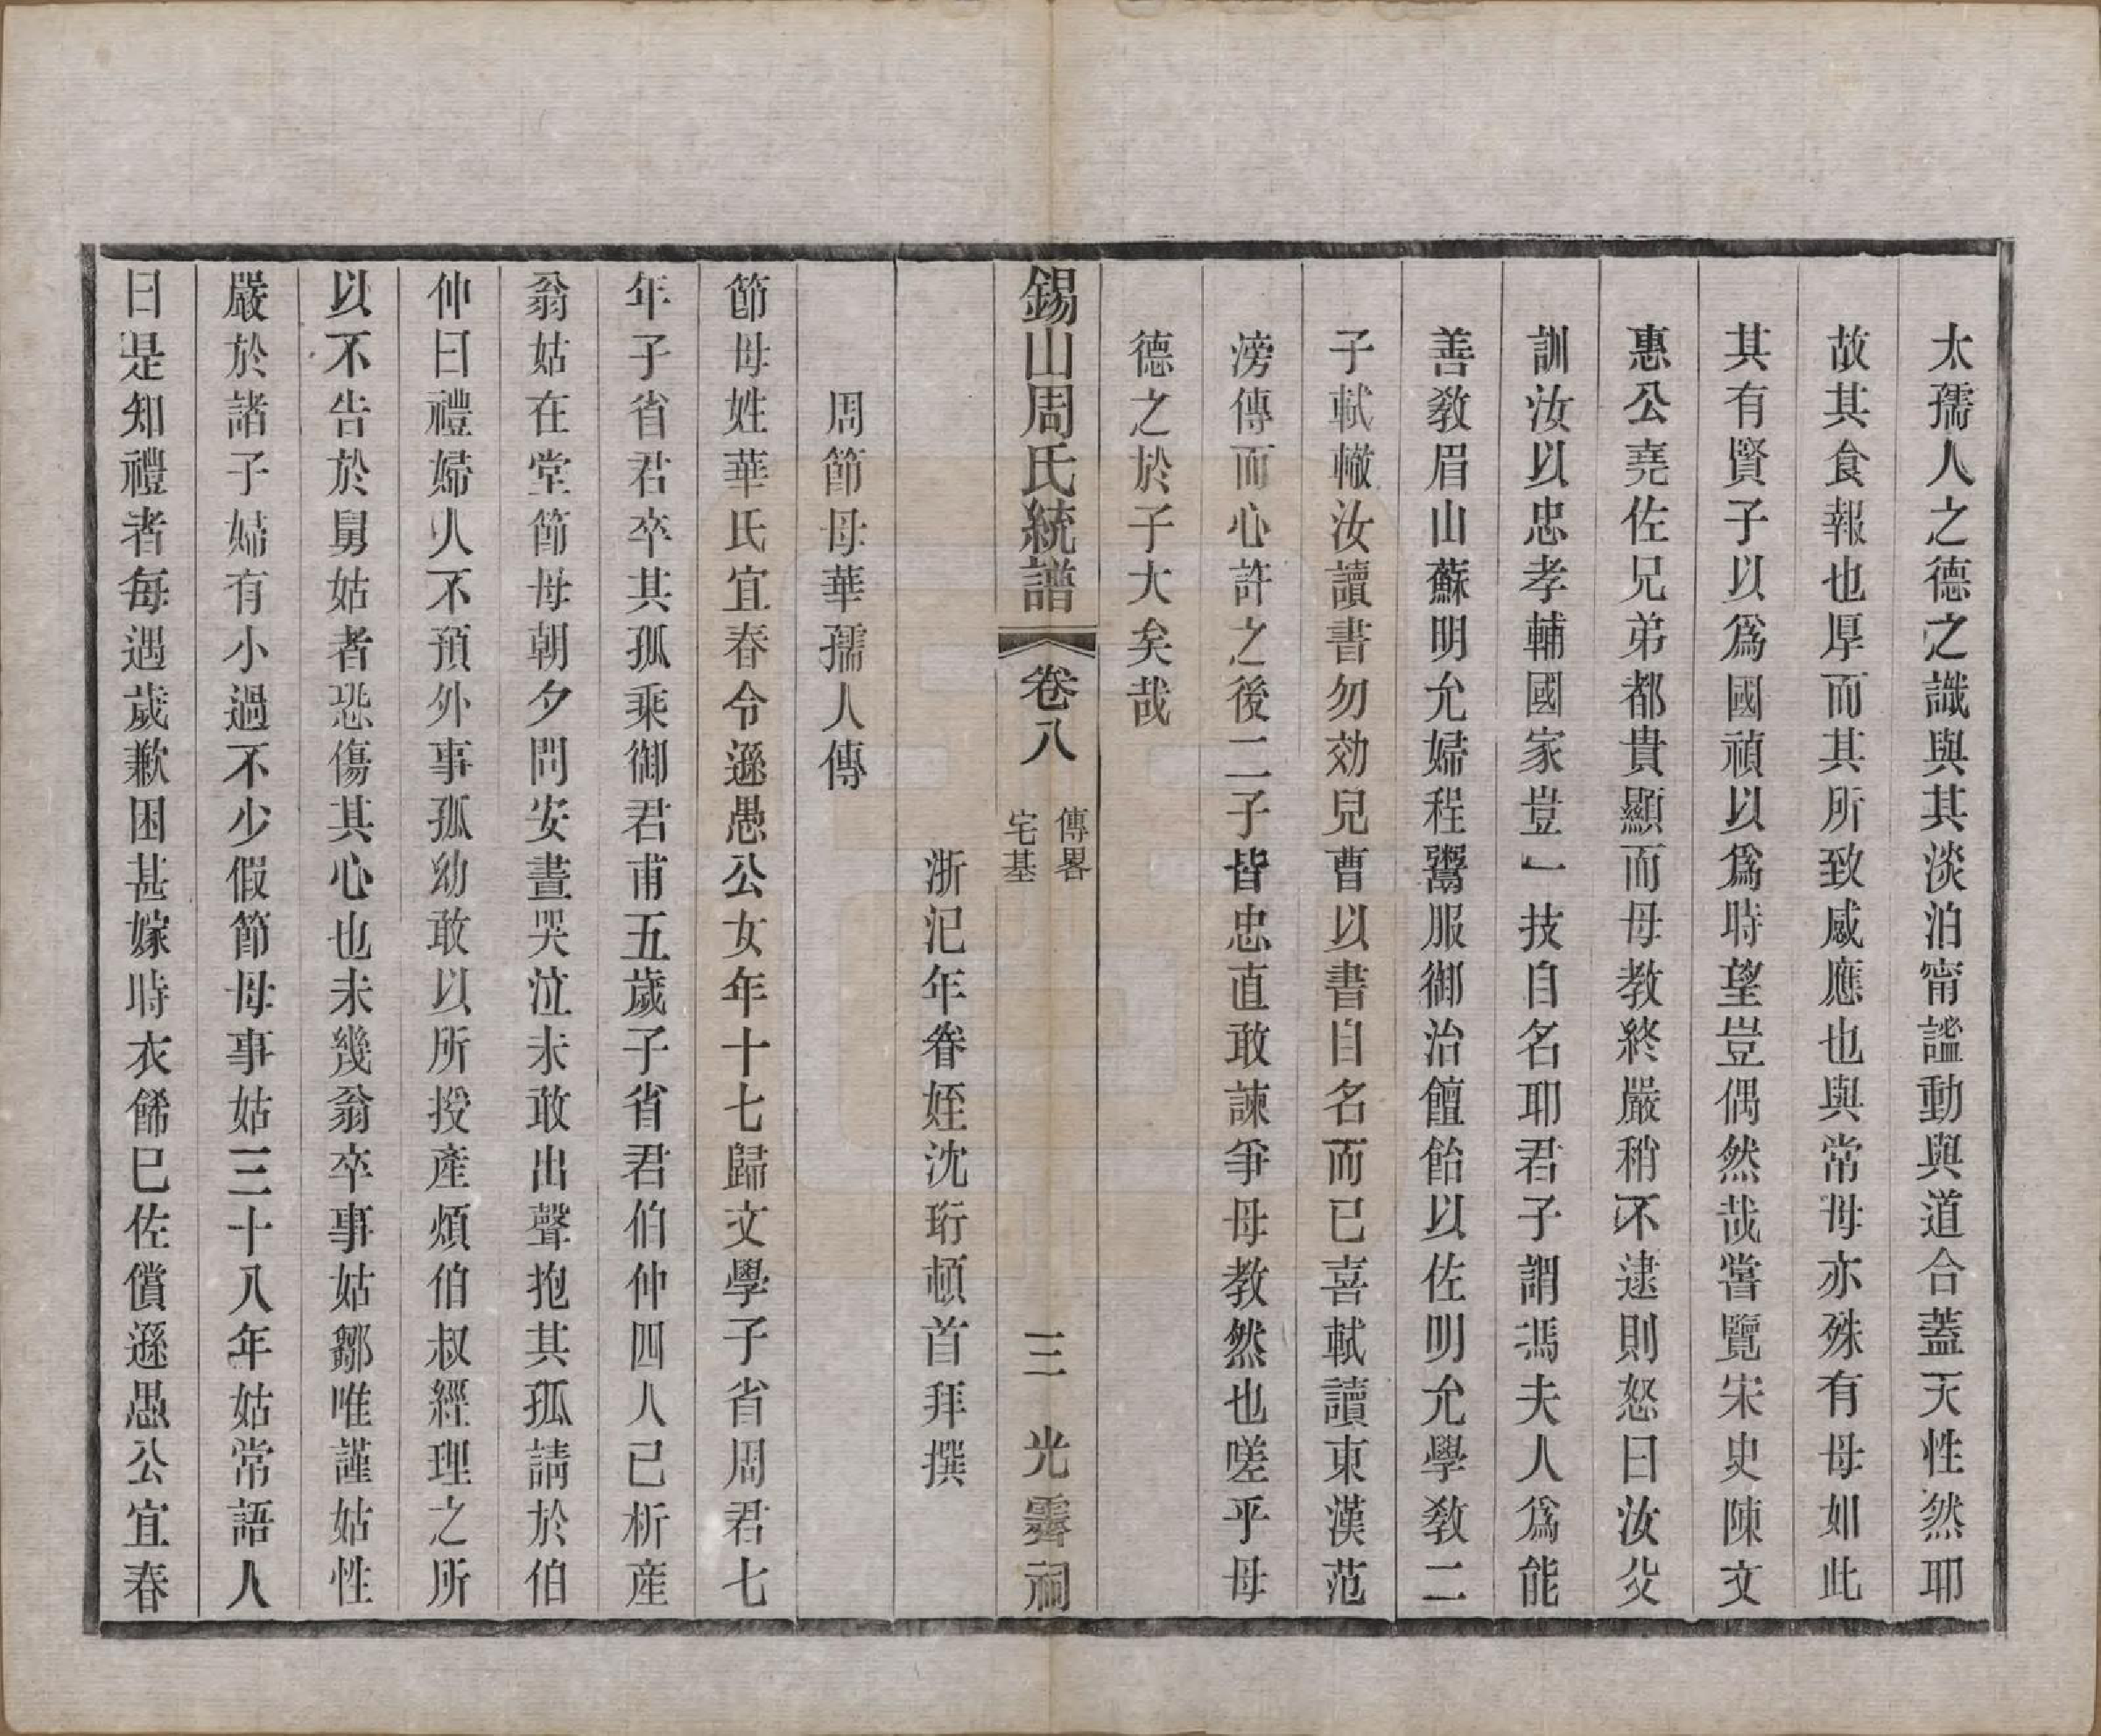 太孺人之德之識與其淡泊甯謐動與道合蓋天性然耶
故其食報也厚而其所致感應也與常母亦殊有母如此
其有賢子以爲國禎以爲時望豈偶然哉嘗覽宋史陳文
惠公堯佐兄弟都貴顯而母教終嚴稍不逮則怒曰汝父
訓汝以忠孝輔國家豈一技自名耶君子謂馮夫人爲能
善敎眉山蘇明允婦程鬻服御治饘飴以佐明允學敎二
子軾轍汝讀書勿効兒曹以書自名而已喜軾讀東漢范
滂傳而心許之後二子皆忠直敢諫爭母教然也嗟乎母
德之於子大矣哉
錫山周氏統譜 卷八 傳畧 宅基 三 光霽祠
浙汜年眷姪沈珩頓首拜撰
周節母華孺人傳
節母姓華氏宜春令遜愚公女年十七歸文學子省周君七
年子省君卒其孤乘御君甫五歲子省君伯仲四人已析產
翁姑在堂節母朝夕問安晝哭泣未敢出聲抱其孤請於伯
仲曰禮婦人不預外事孤幼敢以所授產煩伯叔經理之所
以不告於舅姑者恐傷其心也未幾翁卒事姑鄒唯謹姑性
嚴於諸子婦有小過不少假節母事姑三十八年姑常語人
曰是知禮者每遇歲歉困甚嫁時衣餙巳佐償遜愚公宜春